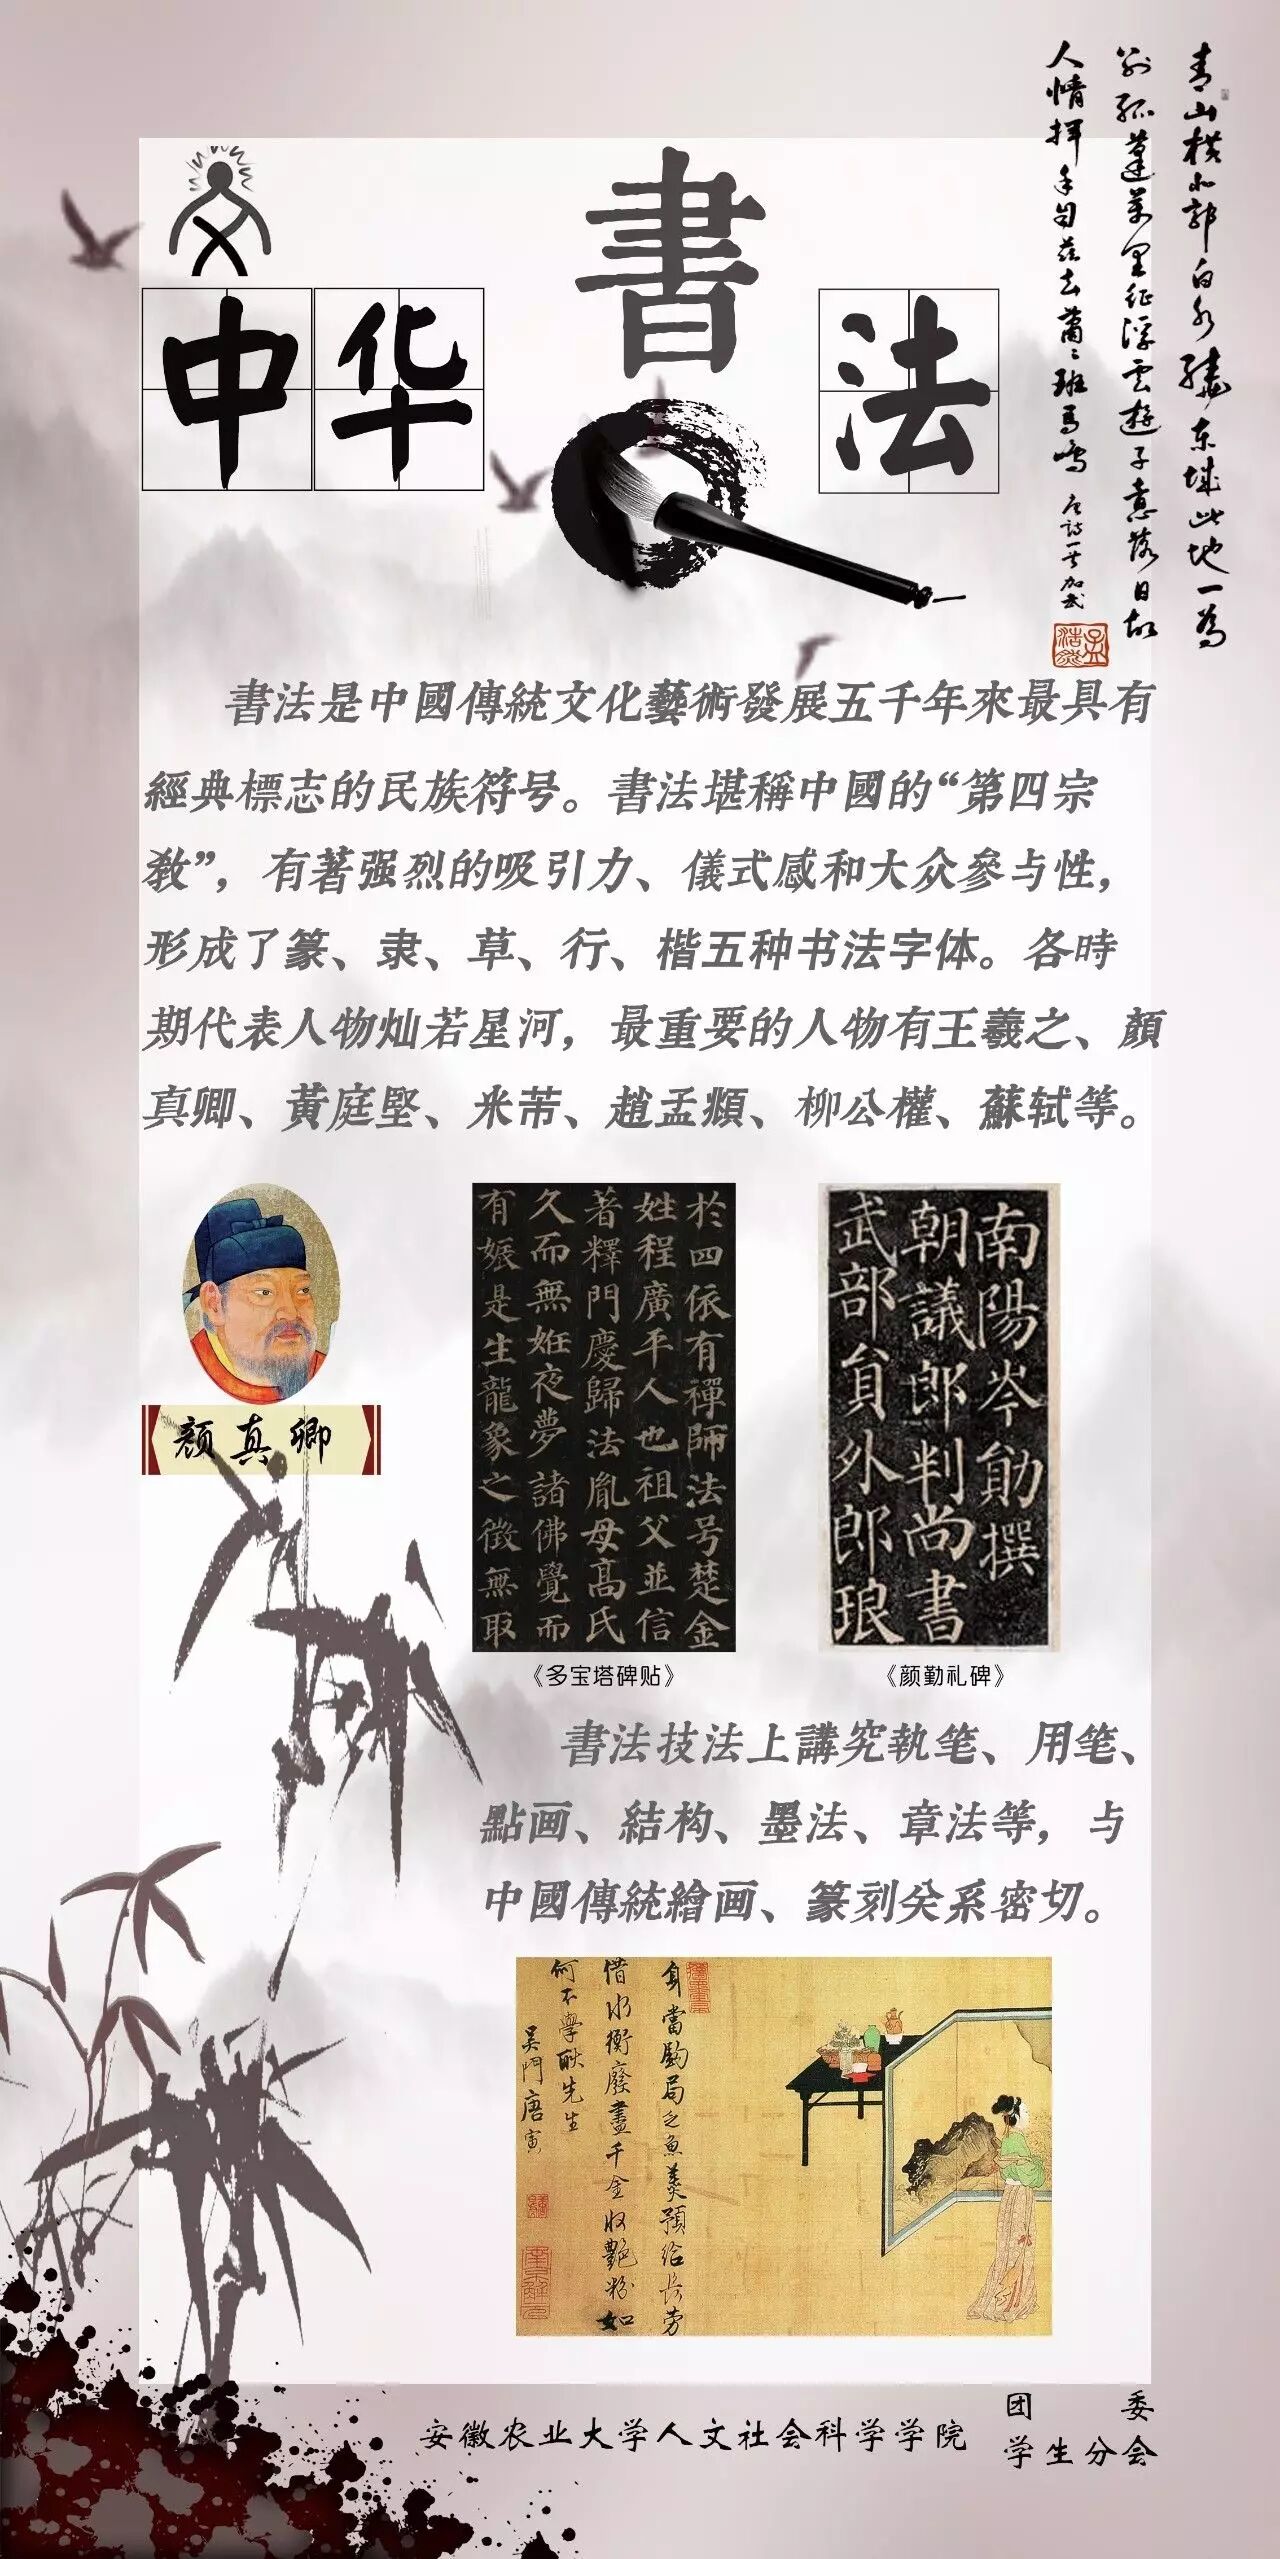 中华書法
青山横北郭白水繞东城此地一為
别孤蓬萬里征浮雲遊子意落日故
人情揮手自茲去蕭〻班馬鳴 唐詩一首
書法是中國傳統文化藝術發展五千年來最具有
經典標志的民族符号。書法堪稱中國的“第四宗
教”，有著强烈的吸引力、儀式感和大众參与性，
形成了篆、隶、草、行、楷五种书法字体。各時
期代表人物灿若星河，最重要的人物有王羲之、顏
真卿、黃庭堅、米芾、趙孟頫、柳公權、蘇轼等。
颜真卿
於四依有禪師法号楚金
姓程廣平人也祖父並信
著釋門慶歸法胤母高氏
久而無姙夜夢諸佛覺而
有娠是生龍象之徵無取
《多宝塔碑贴》
南陽岑勛撰
朝議郎判尚書
武部員外郎琅
《颜勤礼碑》
書法技法上講究執笔、用笔、
點画、結构、墨法、章法等，与
中國傳統繪画、篆刻关系密切。
身當駒局之魚羹預給長劳
借水衡廢畫千金收艷粉如
何不學耿先生
吴門唐寅
安徽农业大学人文社会科学学院
团委
学生分会